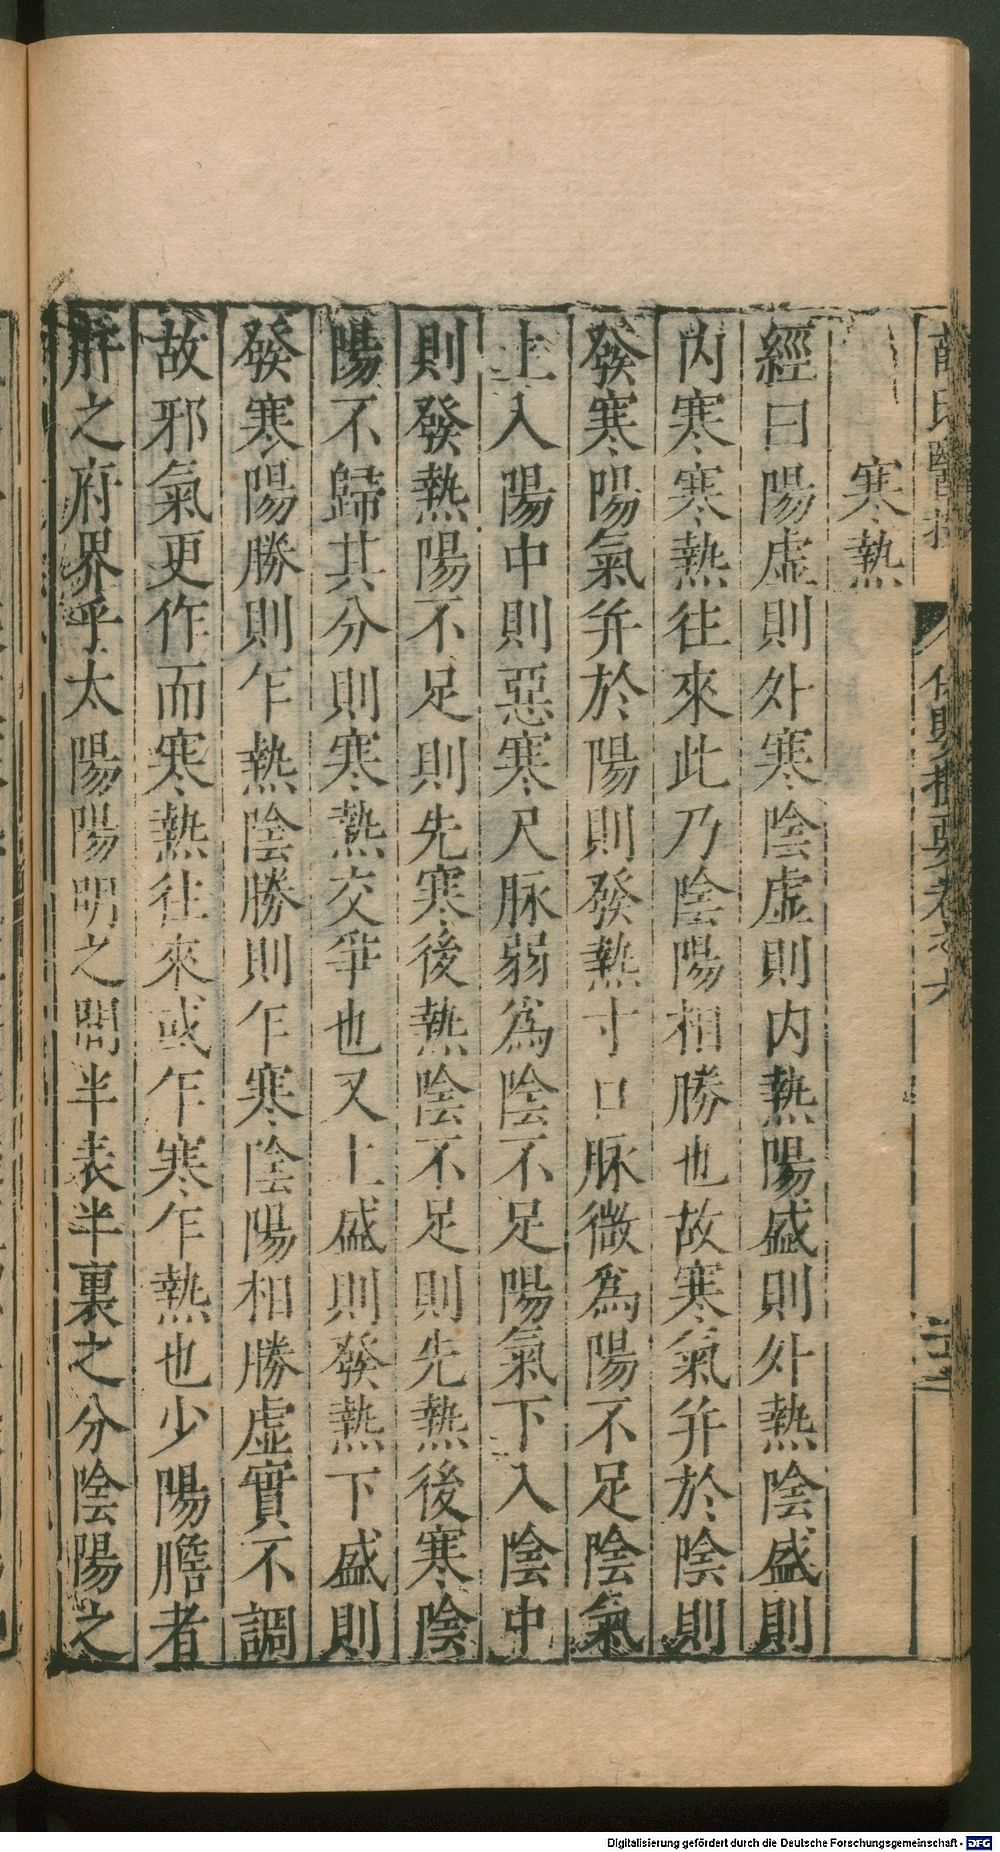 寒熱
經曰陽虛則外寒陰虛則内熱陽盛則外熱陰盛則
内寒寒熱往來此乃陰陽相勝也故寒氣并於陰則
發寒陽氣并於陽則發熱寸口脉微為陽不足陰氣
上入陽中則惡寒尺脉弱為陰不足陽氣下入陰中
則發熱陽不足則先寒後熱陰不足則先熱後寒陰
陽不歸其分則寒熱交爭也又上盛則發熱下盛則
發寒陽勝則乍熱陰勝則乍寒陰陽相勝虛實不調
故邪氣更作而寒熱往來或乍寒乍熱也少陽膽者
肝之府界乎太陽陽明之間半表半裏之分陰陽之
Digitalisierung gefördert durch die Deutsche Forschungsgemeinschaft - DFG